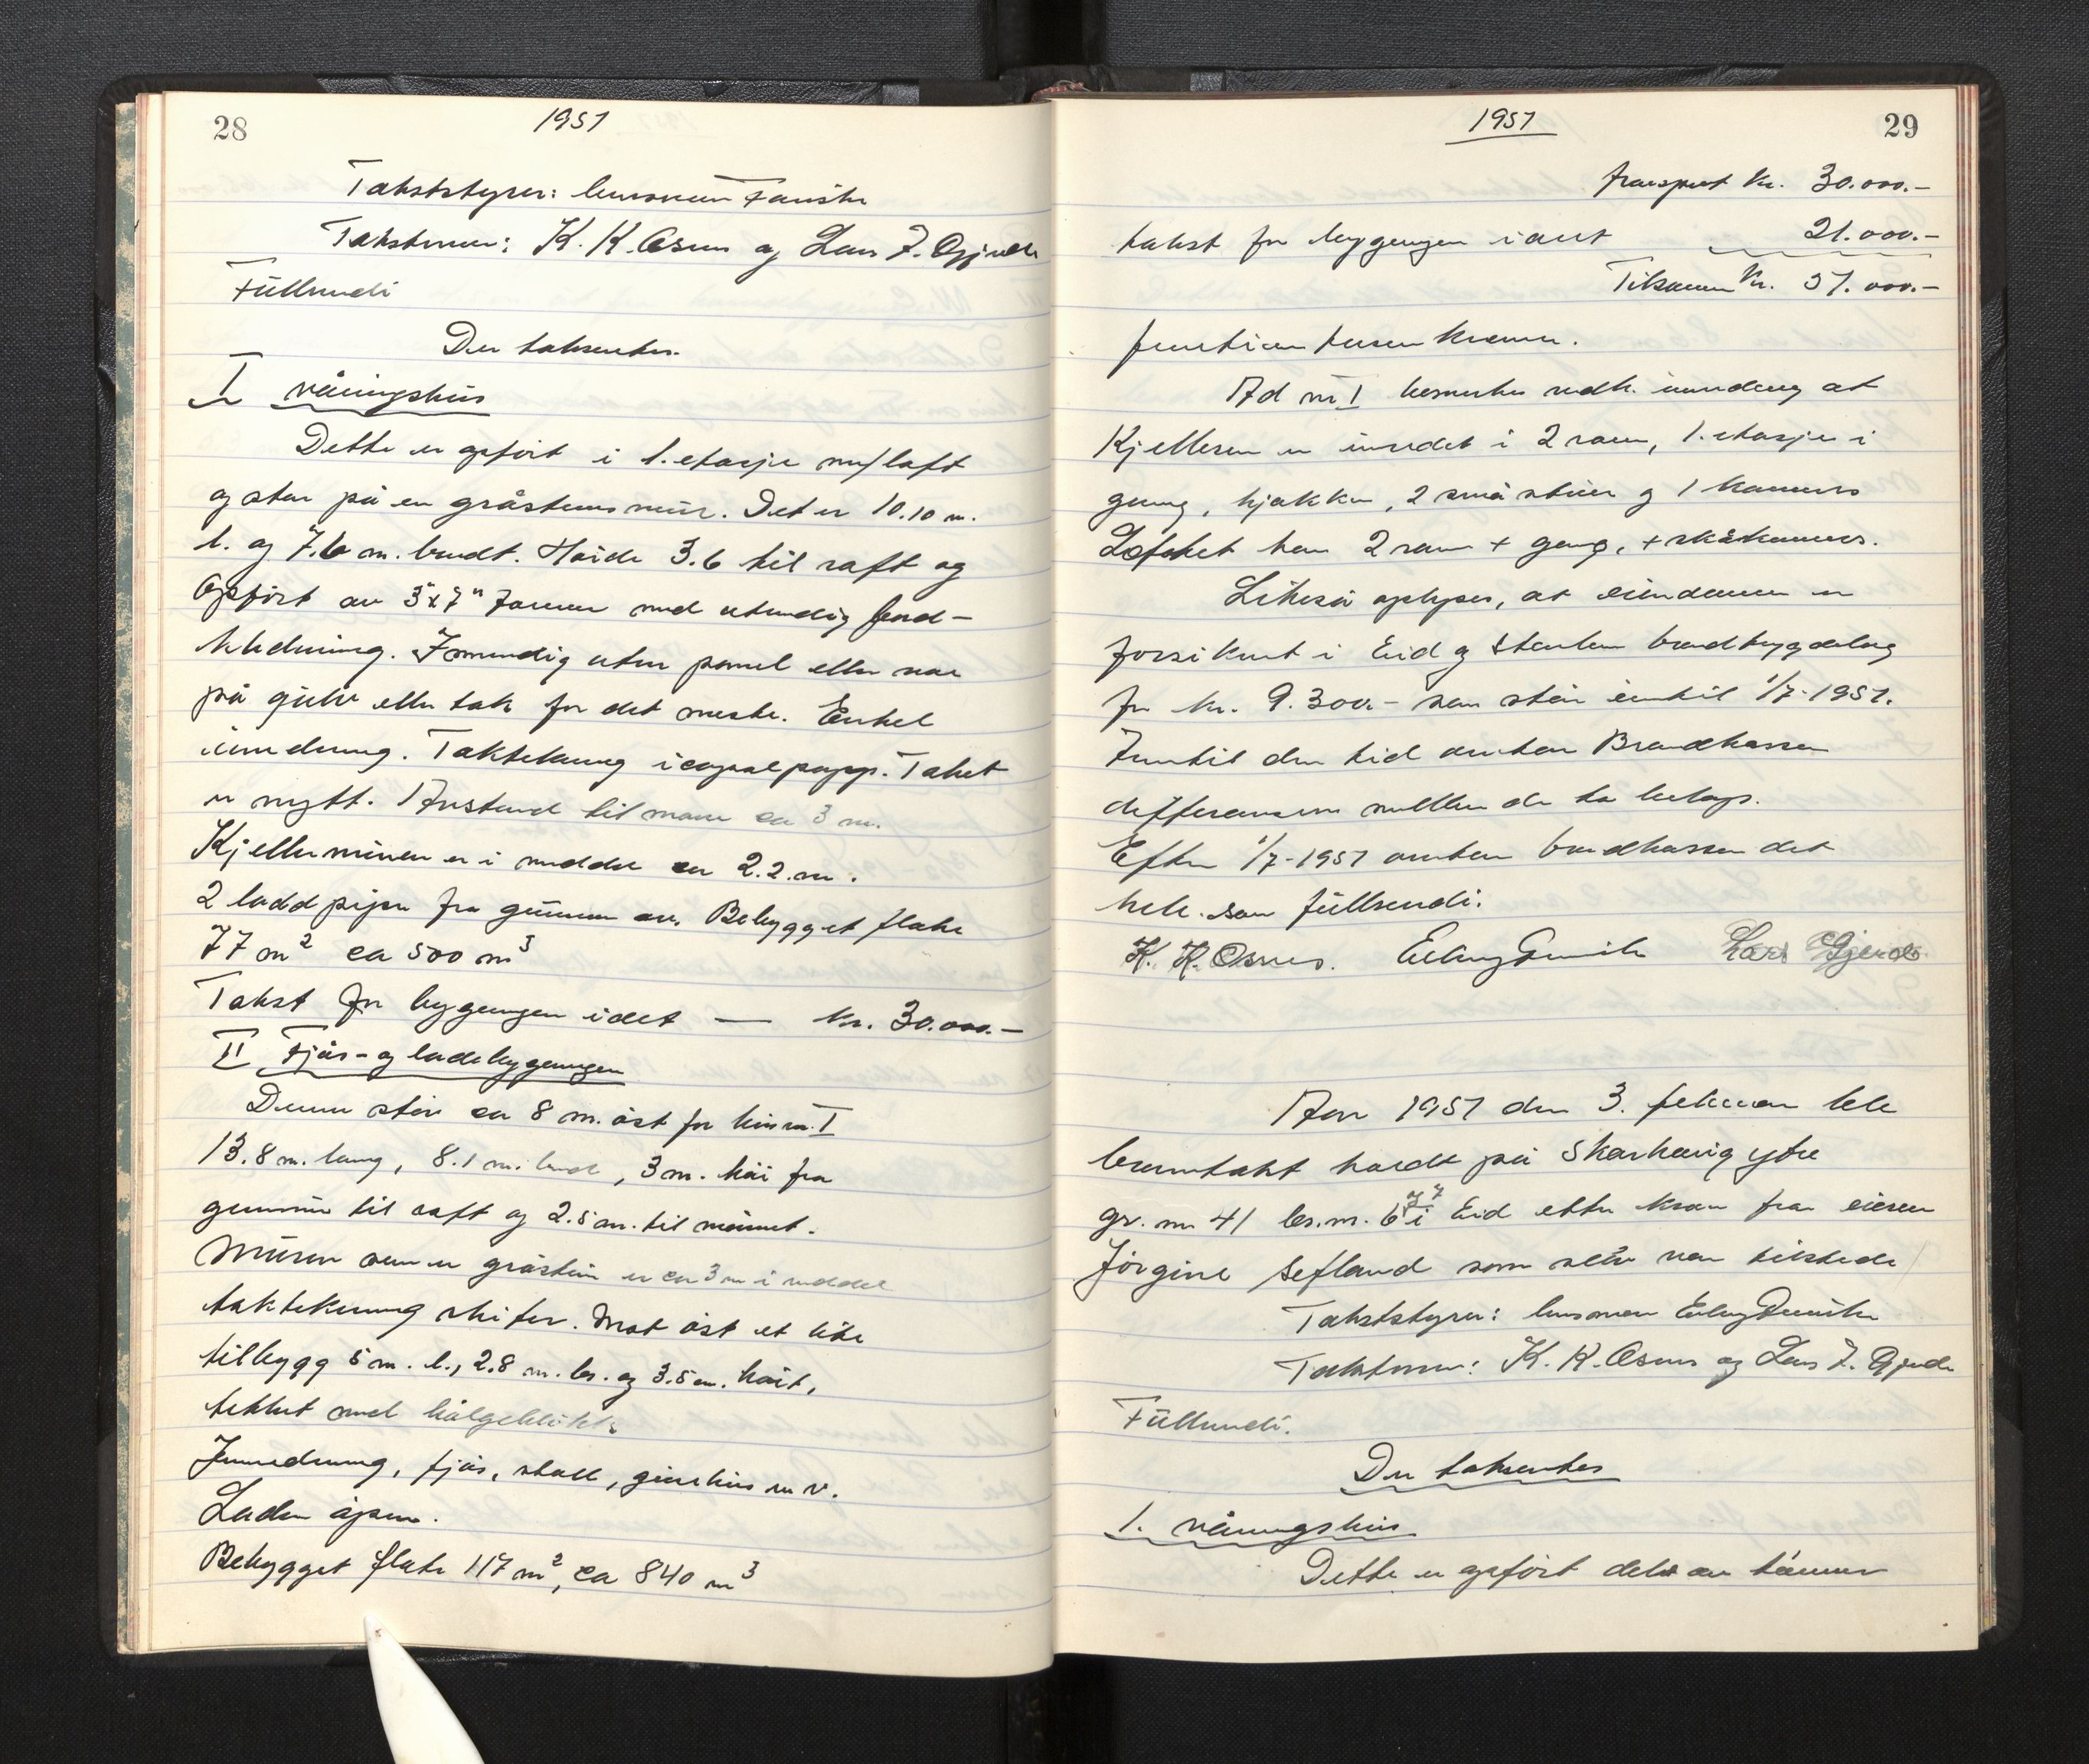 28
1951
Takststyrer: lensmann
Takstmenn: K. K. Osnes og Lars J. Gjerde
Füllsendi
Der taksertes.
I våningshüs
Dette er opført i 1. etasje m/loft
og står på en gråsteins mür. Det er 10.10 m.
l. og 7.6 m. bredt. Høide 3.6 til raft og
Opført av 3"x7" tømmer med utvendig bord-
kledning. Innvendig uten panel eller
på gülv eller tak for det meste. Enkel
innredning. Taktekning icopalpapp. Taket
er nytt. Avstand til ca 3 m.
Kjellermüren er i middel ca 2.2. m.
2 lødd piper fra grünnen av. Bebygget flate
77 m² ca 500 m³
Takst for bygningen i det — kr. 30.000.-
II Fjøs- og ladebygningen
Denne står ca 8 m. øst for hüs nr. I
13.8 m. lang, 8.1 m. bred, 3 m. høi fra
grünnmür til raft og 2.5 m. til mønnet.
Müren som er gråstein er ca 3 m i middel
taktekning skifer. Mot øst et lite
tilbygg 5 m. l., 2.8 m. br. og 3.5 m. høit,
tekket med bølgeblikk
Innredning, fjøs, stall, m v.
Laden åpen.
Bebygget flate 117 m², ca 840 m³
1951
29
Transport kr. 30.000.-
takst for bygningen i alt 21.000.-
Tilsammen kr. 51.000.-
femtien tusen kroner.
Ad nr I bemerkes vedk. innredning at
Kjelleren er innredet i 2 rom, 1. etasje i
gang, kjøkken, 2 små stüer og 1 kammers
Loftet har 2 rom + gang, + skåkammers.
Likeså oplyses, at eiendommen er
forsikret i Eid og brandbygdelag
for kr. 9.300.- som står inntil 1/7-1951.
Inntil den tid Brandkassen
differansen mellem de to beløp.
Efter 1/7-1951 brandkassen det
hele som füllsendi.
K. K. Osnes. Lars Gjerde
Aar 1951 den 3. februar ble
branntakst holdt på Skarhaug ytre
gr. nr 41 br. nr. 6 og 7 i Eid etter krav fra eieren
Jørgine Sefland som selv var tilstede
Takststyrer: lensmann
Takstmenn: K. K. Osnes og Lars J. Gjerde
Füllsendi.
Der taksertes
1. våningshüs
Dette er opført dels av tømmer